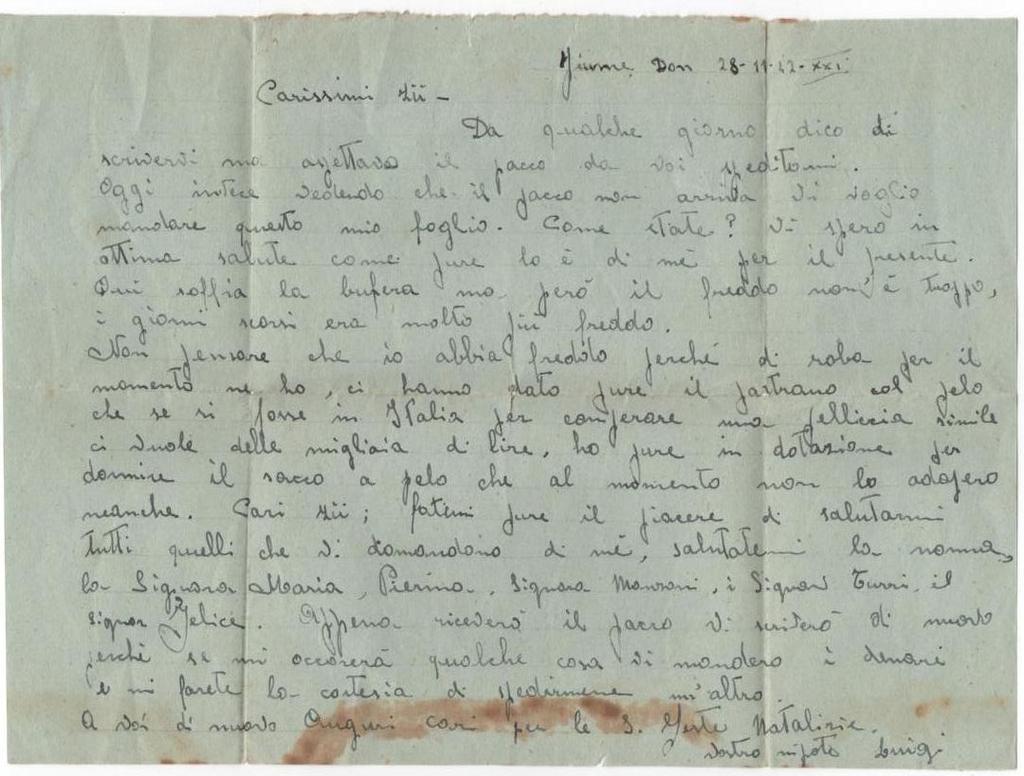 Fiume Don 28-11-42-XXI
Carissimi zii -
Da qualche giorno dico di
scrivervi ma aspettavo il pacco da voi speditomi.
Oggi invece vedendo che il pacco non arriva vi voglio
mandare questo mio foglio. Come state? Vi spero in
ottima salute come pure lo è di mé per il presente.
Qui soffia la bufera ma però il freddo non'è troppo,
i giorni scorsi era molto più freddo.
Non pensare che io abbia freddo perché di roba per il
momento ne ho, ci hanno dato pure il pastrano col pelo
che se si fosse in Italia per comperare una pelliccia simile
ci vuole delle migliaia di lire, ho pure in dotazione per
dormire il sacco a pelo che al momento non lo adopero
neanche. Cari zii; fatemi pure il piacere di salutarmi
tutti quelli che vi domandano di mé, salutatemi la nonna,
la Signora Maria, Pierino, Signora Manzoni, i Signori Turri, il
Signor Felice. Appena riceverò il pacco vi scriverò di nuovo
perché se mi occorerà qualche cosa vi manderò i denari
e mi farete la cortesia di spedirmene un'altro.
A voi di nuovo Auguri cari per le S. Feste Natalizie.
Vostro nipote Luigi